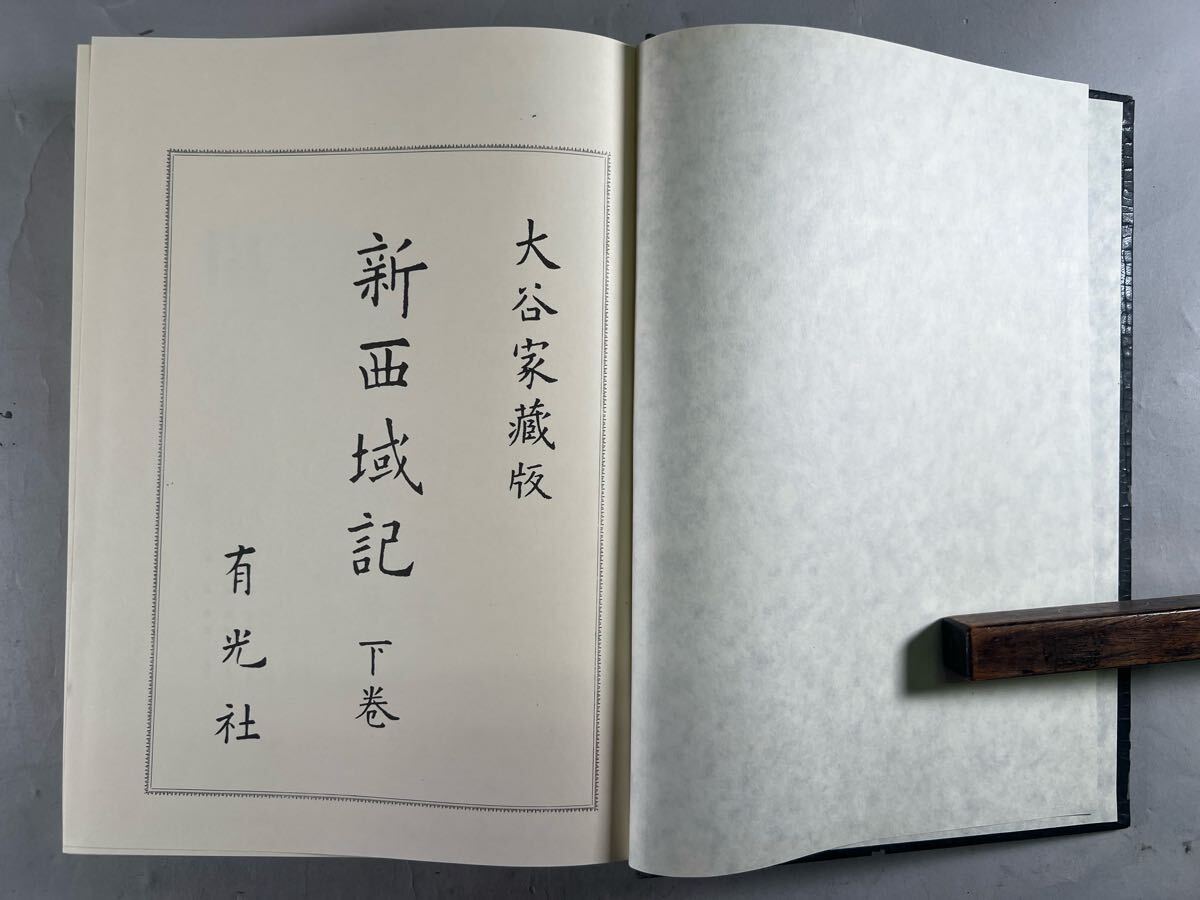 大谷家蔵版
新西域記 下巻
有光社